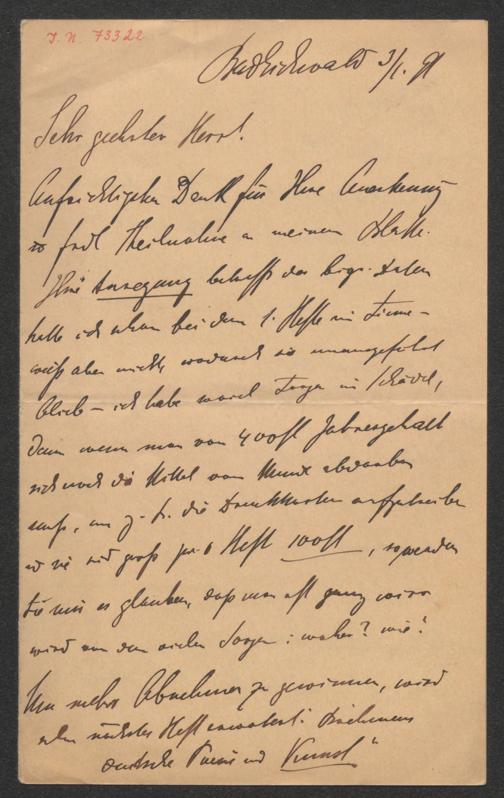 J. N. 73322
3/1. 91
Sehr geehrter Herr!
Aufrichtigsten Dank für Ihre Anerkennung
Theilnahme an meinem Blatte.
Ihre Anregung betreffs der biogr. Daten
hatte ich schon bei dem 1. Hefte im Sinne –
weiß aber nicht, wodurch sie unausgeführt
blieb – ich habe soviel Sorgen im Schädel,
denn wenn man von 400 fl Jahresgehalt
sich noch die Mittel vom Munde abdarben
muß, um z. B. die Druckkosten aufzutreiben
Heft 100 fl, so werden
Sie mir es glauben, daß man oft ganz wirr
wird von den vielen Sorgen: woher? wie?
Um mehr Abnehmer zu gewinnen, wird
nächstes Heft erweitert: Böhmens
deutsche Poesie und Kunst"